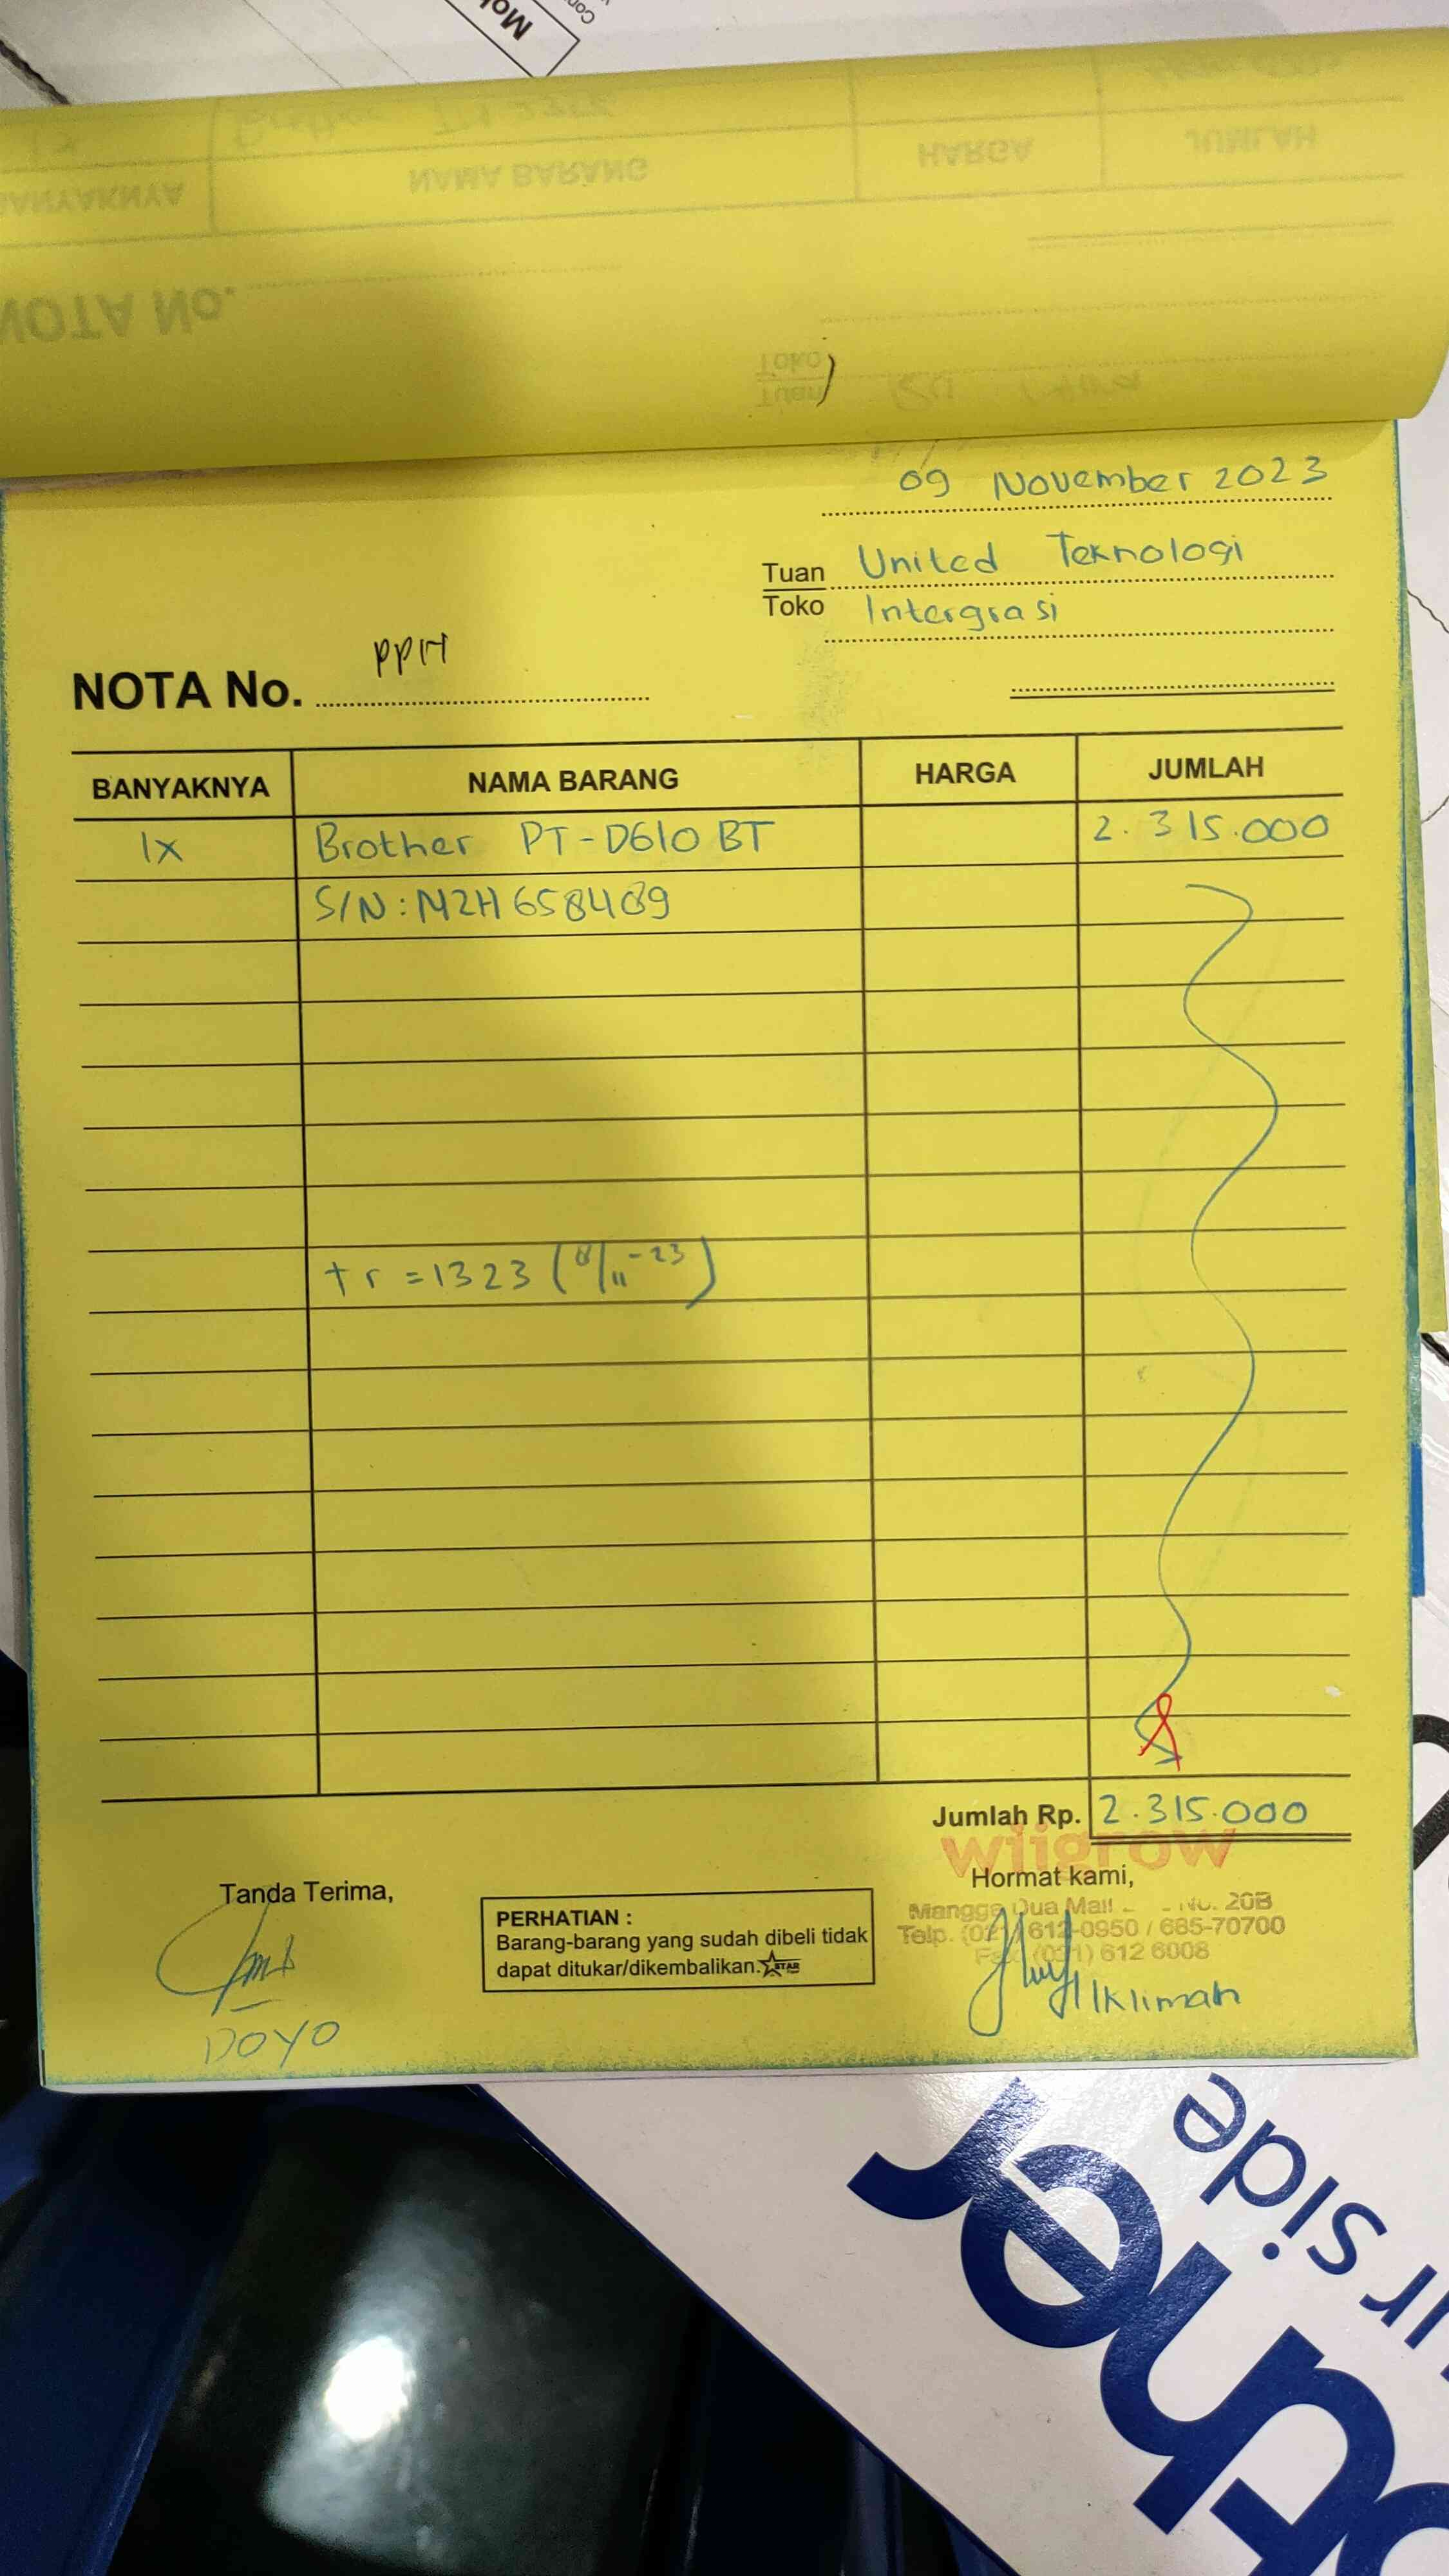 NAMA BARANG
HARGA
JUMLAH
NOTA No.
Toko
Tuan
09 November 2023
Tuan United Teknologi
Toko Intergrasi
PPH
NOTA No.
BANYAKNYA NAMA BARANG HARGA JUMLAH
1x Brother PT-D610 BT 2.315.000
S/N: M2H658489
tr = 1323 (8/11-23)
Jumlah Rp. 2.315.000
wijgrow
Tanda Terima,
Hormat kami,
PERHATIAN :
Barang-barang yang sudah dibeli tidak
dapat ditukar/dikembalikan. STAR
Mangga Dua Mall No. 20B
Telp. (021) 612-0950 / 685-70700
Fax. (021) 612 6008
Iklimah
DOYO
r side